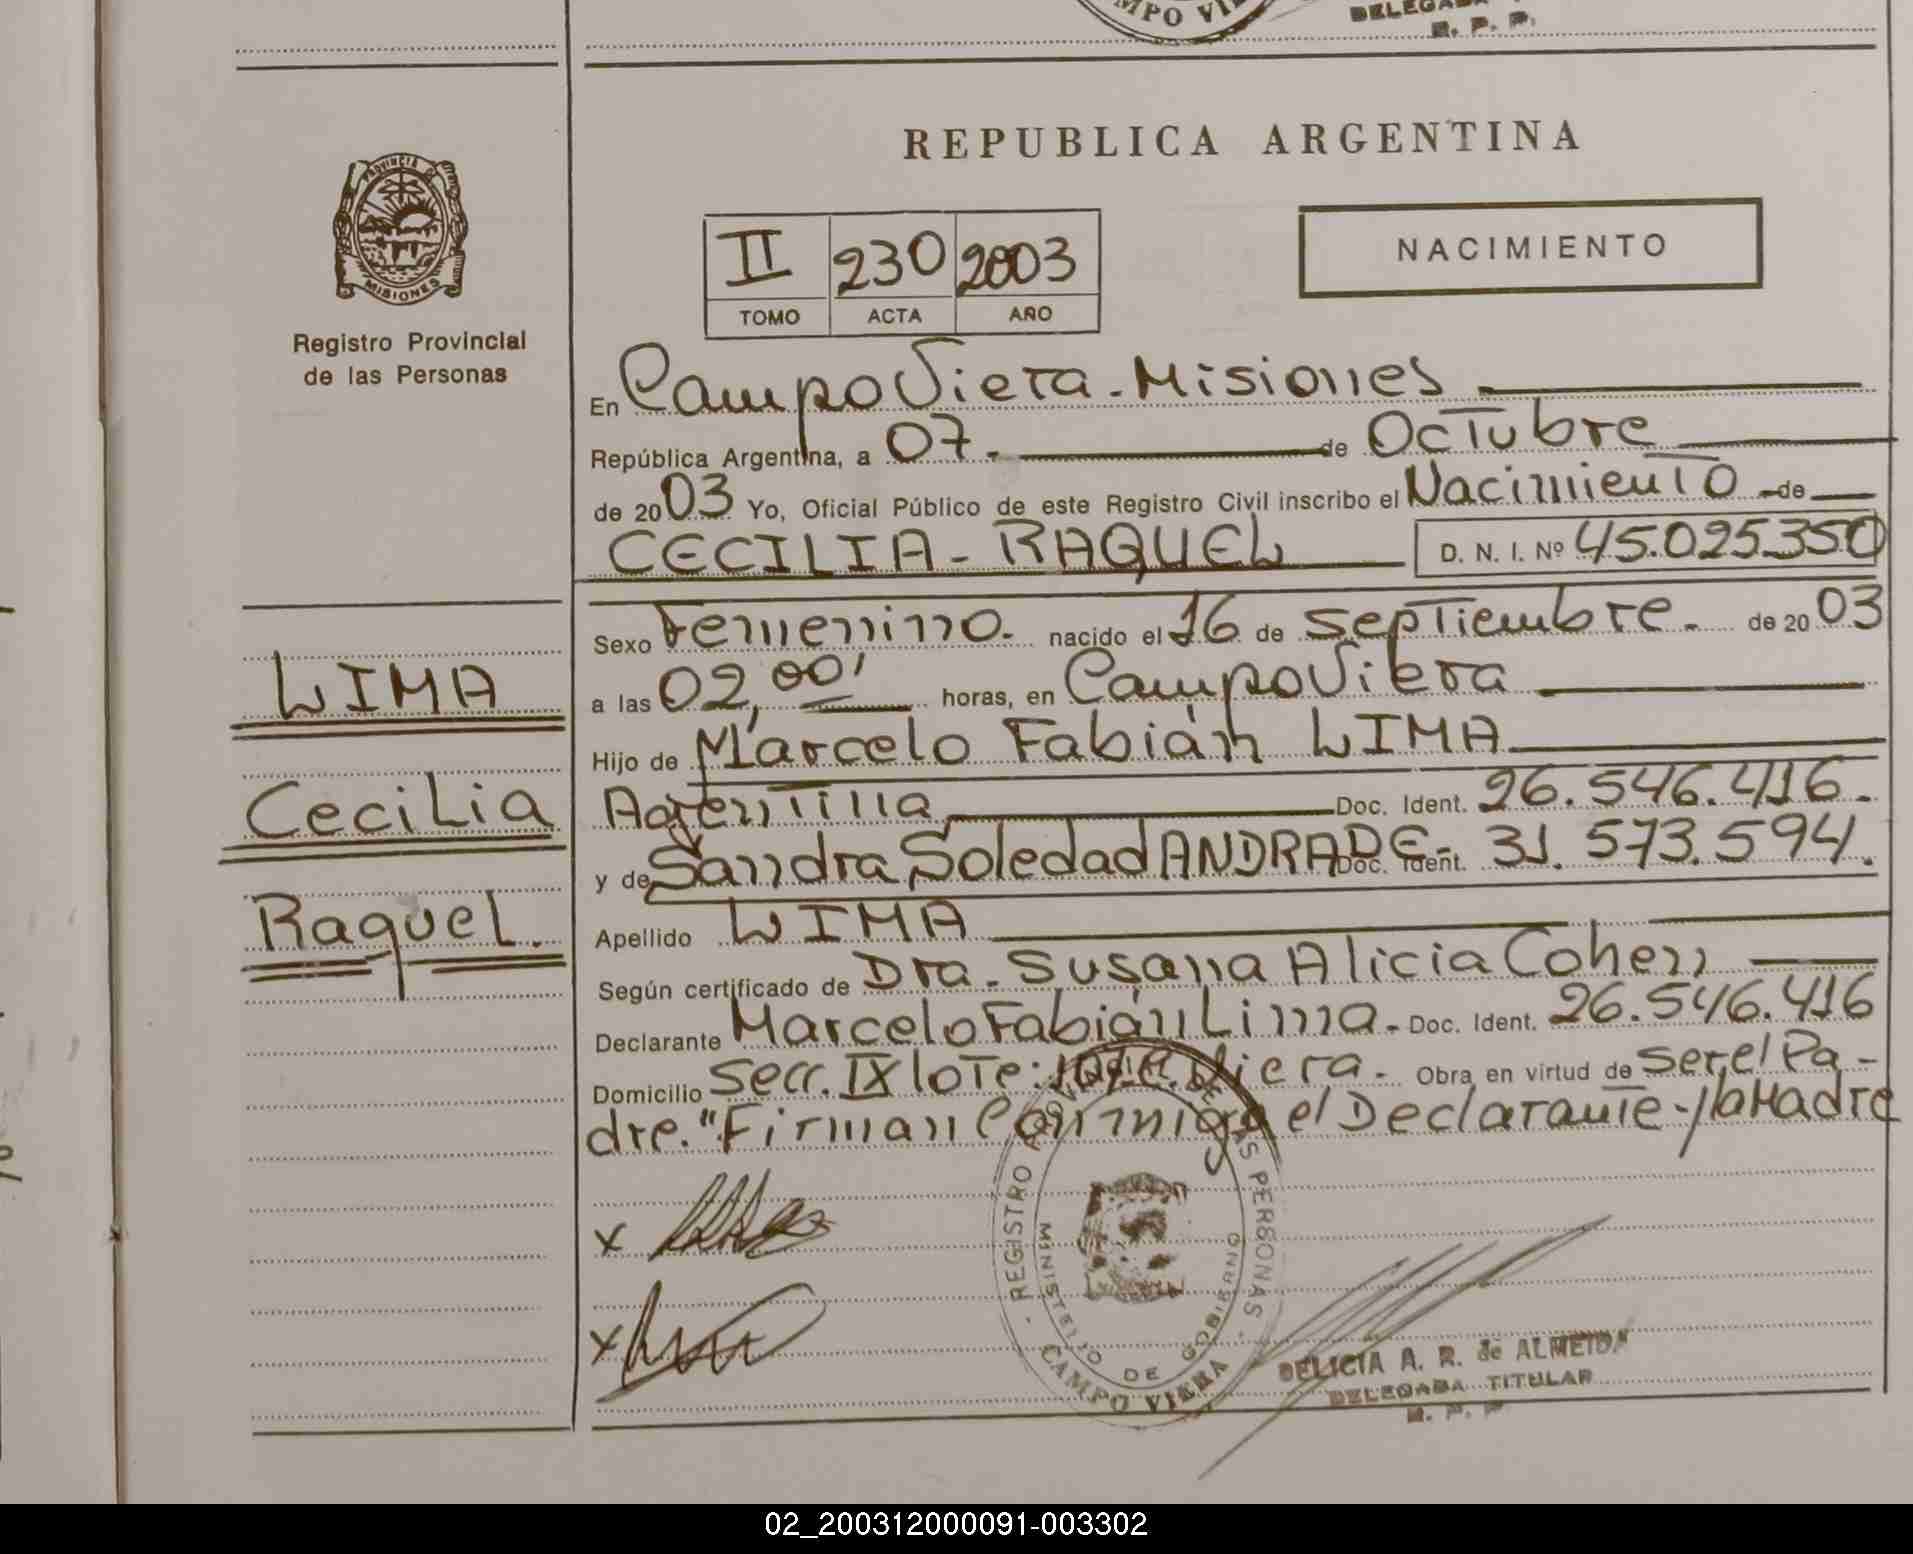 MPO VI
DELEGADA
R. P. P.
REPUBLICA ARGENTINA
PROVINCIA DE
MISIONES
Registro Provincial
de las Personas
II 230 2003
TOMO ACTA AÑO
NACIMIENTO
En Campo Viera - Misiones
República Argentina, a 07. de Octubre
de 2003 Yo, Oficial Público de este Registro Civil inscribo el Nacimiento de
CECILIA - RAQUEL D. N. I. Nº 45.025.350
Sexo Femenino. nacido el 16 de septiembre. de 2003
a las 02,00' horas, en Campo Viera
Hijo de Marcelo Fabián LIMA
Argentina Doc. Ident. 26.546.416.
y de Sandra Soledad ANDRADE- Doc. Ident. 31.573.594.
Apellido LIMA
Según certificado de Dra. Susana Alicia Cohen
Declarante Marcelo Fabián Lima. Doc. Ident. 26.546.416
Domicilio Secc. IX lote: C. Viera. Obra en virtud de ser el Pa-
dre." Firman Conmigo el Declarante-y la Madre
LIMA
Cecilia
Raquel.
x
x
REGISTRO DE LAS PERSONAS
MINISTERIO DE GOBIERNO
CAMPO VIERA
DELICIA A. R. de ALMEIDA
DELEGADA TITULAR
R. P. P.
02_200312000091-003302